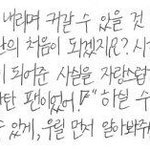 내리며 커갈 수 있을 것
의 처음이 되겠지요? 사
이 되어준 사실을 자랑스럽
팬이었어!" 하실 수
수 있게, 우릴 먼저 알아봐줘